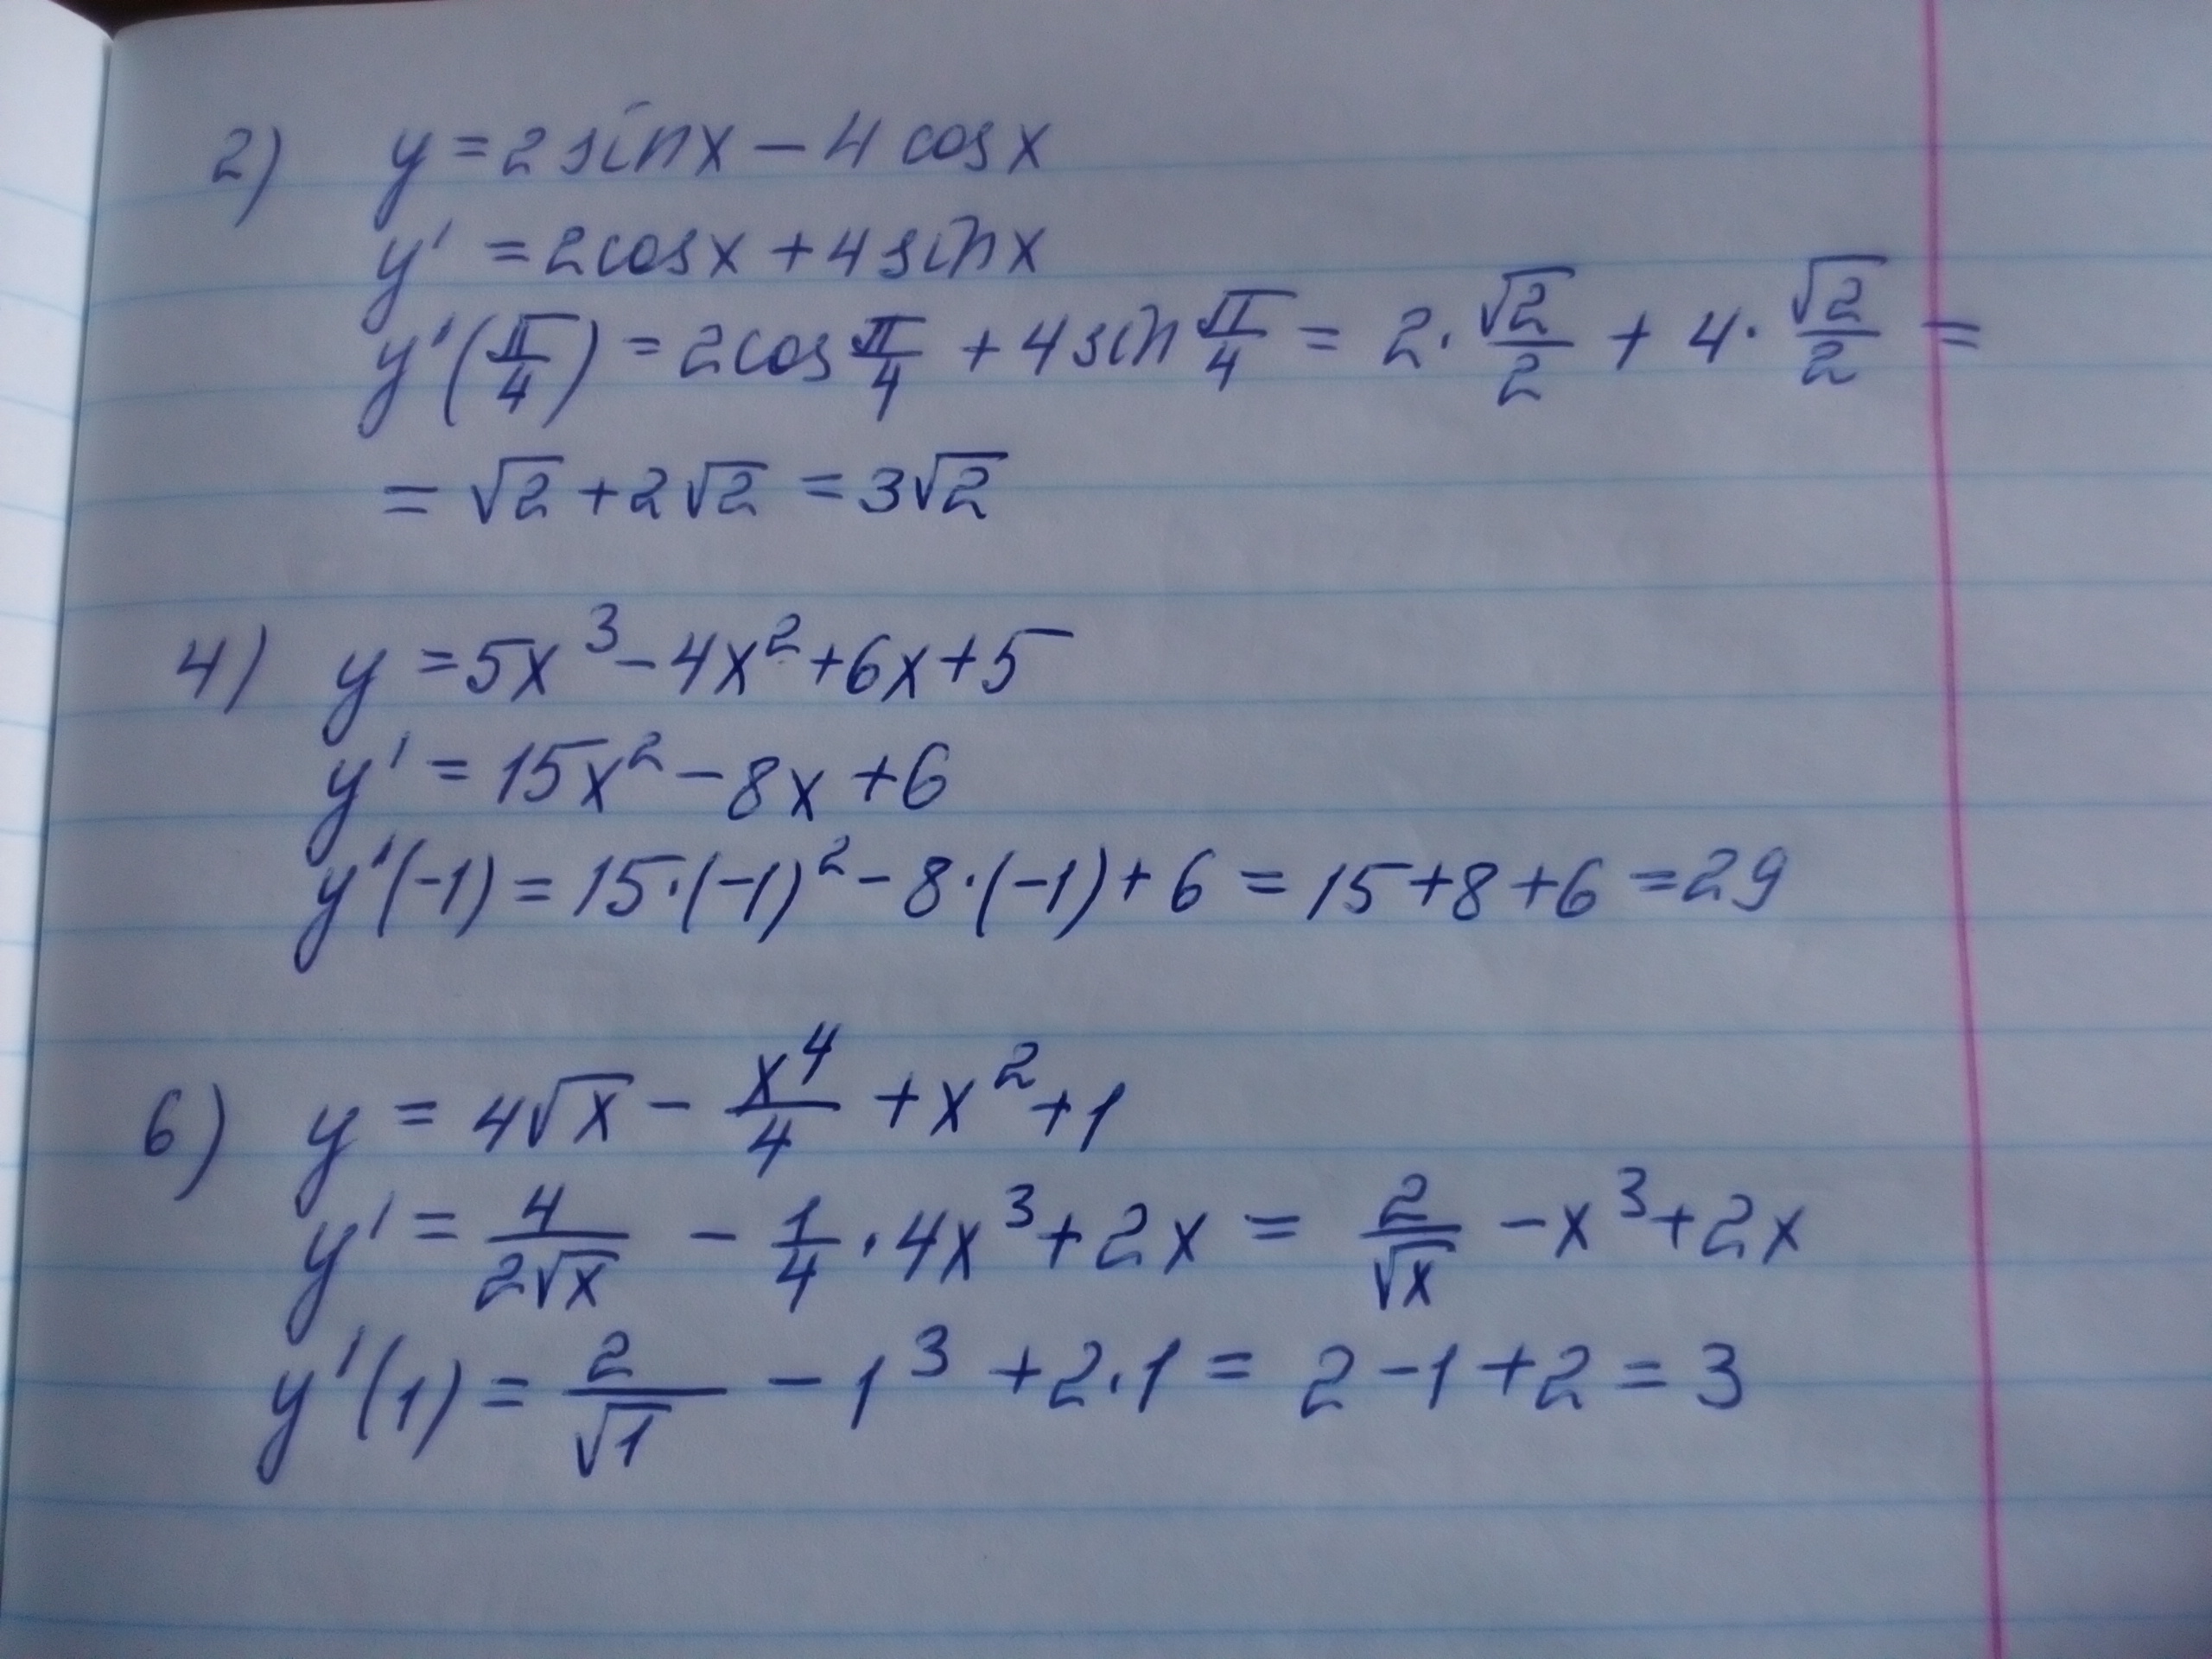 2) y = 2 sin x − 4 cos x
y' = 2cos x + 4 sin x
y'(π/4) = 2cos π/4 + 4 sin π/4 = 2·√2/2 + 4·√2/2 =
= √2 + 2√2 = 3√2
4) y = 5x³ − 4x² + 6x + 5
y' = 15x² − 8x + 6
y'(−1) = 15·(−1)² − 8·(−1) + 6 = 15 + 8 + 6 = 29
6) y = 4√x − x⁴/4 + x² + 1
y' = 4/(2√x) − 1/4·4x³ + 2x = 2/√x − x³ + 2x
y'(1) = 2/√1 − 1³ + 2·1 = 2 − 1 + 2 = 3